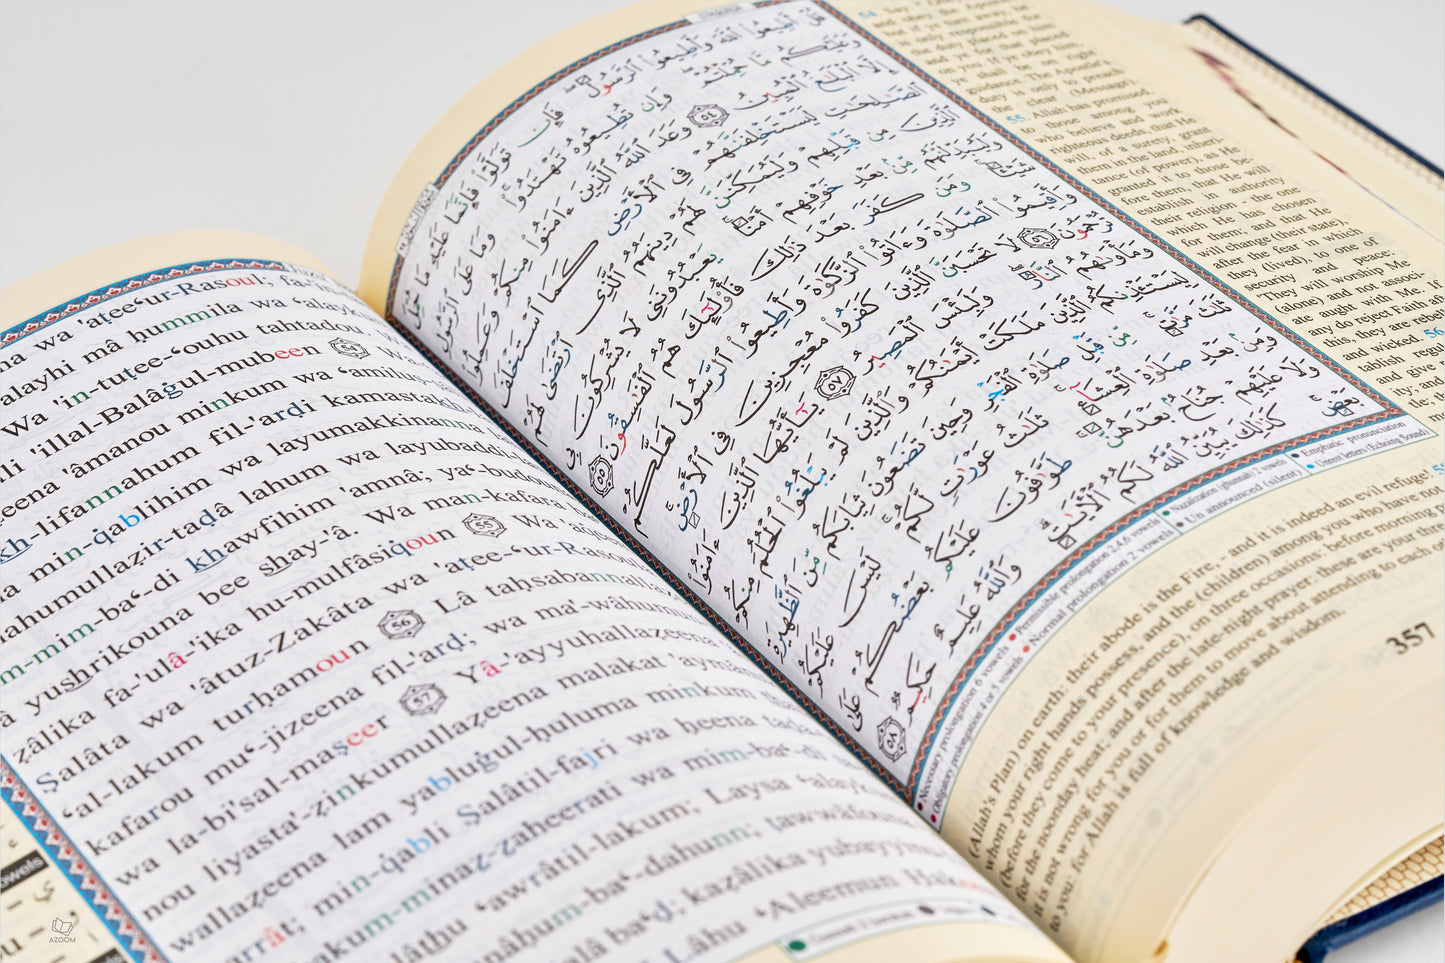 na wa 'aṭee‘ur-Rasoul; fa-'in
‘alayhi mâ ḥummila wa ‘alayku
Wa 'in-tuṭee-‘ouhu tahtadou
'illal-Balâġul-mubeen 54
'âmanou minkum wa ‘amiluṣ-
kh-lifannahum fil-'arḍi kamastakh-l
min-qablihim wa layumakkinanna
lahumullaẓir-taḍâ lahum wa layubaddi
m-mim-ba‘-di khawfihim 'amnâ, ya‘-budou
yushrikouna bee shay-'â. Wa man-kafara
ẓâlika fa-'ula-'ika hu-mulfâsiqoun 55
Ṣalâta wa 'âtuz-Zakâta wa 'aṭee-‘ur-Rasou
‘al-lakum turḥamoun 56 Lâ taḥsabannall
kafarou mu‘-jizeena fil-'arḍ; wa ma'-wâhumu
wa la-bi'sal-maṣeer 57 Yâ-'ayyuhallaẓeena
nou liyasta'-ẓinkumullaẓeena malakat 'aymân
wallaẓeena lam yabluġul-ḥuluma minkum
arrât; min-qabli Ṣalâtil-fajri wa ḥeena taḍa
bakum-minaẓ-ẓaheerati wa mim-ba‘-di
‘awrâtil-lakum; Laysa ‘alayk
ba‘-dahunn; ṭawwâfouna
kaẓâlika yubayyinu
‘Aleemun Ḥak
owels
AZOOM
قُلْ أَطِيعُوا۟ ٱللَّهَ وَأَطِيعُوا۟ ٱلرَّسُولَ ۖ فَإِن تَوَلَّوْا۟ فَإِنَّمَا عَلَيْهِ مَا حُمِّلَ
وَعَلَيْكُم مَّا حُمِّلْتُمْ ۖ وَإِن تُطِيعُوهُ تَهْتَدُوا۟ ۚ وَمَا عَلَى ٱلرَّسُولِ
إِلَّا ٱلْبَلَٰغُ ٱلْمُبِينُ ٥٤ وَعَدَ ٱللَّهُ ٱلَّذِينَ ءَامَنُوا۟ مِنكُمْ وَعَمِلُوا۟
ٱلصَّٰلِحَٰتِ لَيَسْتَخْلِفَنَّهُمْ فِى ٱلْأَرْضِ كَمَا ٱسْتَخْلَفَ
ٱلَّذِينَ مِن قَبْلِهِمْ وَلَيُمَكِّنَنَّ لَهُمْ دِينَهُمُ ٱلَّذِى ٱرْتَضَىٰ لَهُمْ
وَلَيُبَدِّلَنَّهُم مِّنۢ بَعْدِ خَوْفِهِمْ أَمْنًا ۚ يَعْبُدُونَنِى لَا يُشْرِكُونَ بِى
شَيْـًٔا ۚ وَمَن كَفَرَ بَعْدَ ذَٰلِكَ فَأُو۟لَٰٓئِكَ هُمُ ٱلْفَٰسِقُونَ ٥٥
وَأَقِيمُوا۟ ٱلصَّلَوٰةَ وَءَاتُوا۟ ٱلزَّكَوٰةَ وَأَطِيعُوا۟ ٱلرَّسُولَ لَعَلَّكُمْ
تُرْحَمُونَ ٥٦ لَا تَحْسَبَنَّ ٱلَّذِينَ كَفَرُوا۟ مُعْجِزِينَ فِى ٱلْأَرْضِ
وَمَأْوَىٰهُمُ ٱلنَّارُ ۖ وَلَبِئْسَ ٱلْمَصِيرُ ٥٧ يَٰٓأَيُّهَا ٱلَّذِينَ ءَامَنُوا۟
لِيَسْتَـْٔذِنكُمُ ٱلَّذِينَ مَلَكَتْ أَيْمَٰنُكُمْ وَٱلَّذِينَ لَمْ يَبْلُغُوا۟ ٱلْحُلُمَ مِنكُمْ
ثَلَٰثَ مَرَّٰتٍ ۚ مِّن قَبْلِ صَلَوٰةِ ٱلْفَجْرِ وَحِينَ تَضَعُونَ ثِيَابَكُم مِّنَ ٱلظَّهِيرَةِ
وَمِنۢ بَعْدِ صَلَوٰةِ ٱلْعِشَآءِ ۚ ثَلَٰثُ عَوْرَٰتٍ لَّكُمْ ۚ لَيْسَ عَلَيْكُمْ
وَلَا عَلَيْهِمْ جُنَاحٌۢ بَعْدَهُنَّ ۚ طَوَّٰفُونَ عَلَيْكُم بَعْضُكُمْ عَلَىٰ
بَعْضٍ ۚ كَذَٰلِكَ يُبَيِّنُ ٱللَّهُ لَكُمُ ٱلْءَايَٰتِ ۗ وَٱللَّهُ عَلِيمٌ حَكِيمٌ ٥٨
54
and obey the Apostle
but if ye turn away, he
is only responsible for
the duty placed on him
and ye for that placed
on you. If ye obey him,
ye shall be on right
guidance. The Apostle's
duty is only to preach
the clear (Message).
55 Allah has promised,
to those among you
who believe and work
righteous deeds, that He
will, of a surety, grant
them in the land, inheri-
tance (of power), as He
granted it to those be-
fore them; that He will
establish in authority
their religion - the one
which He has chosen
for them; and that He
will change (their state),
after the fear in which
they (lived), to one of
security and peace:
'They will worship Me
(alone) and not associ-
ate aught with Me. If
any do reject Faith after
this, they are rebel
and wicked. 56
Necessary prolongation 6 vowels
Permissible prolongation 2,4,6 vowels
Nazalization (ghunnah) 2 vowels
Emphatic pronunciation
Obligatory prolongation 4 or 5 vowels
Normal prolongation 2 vowels
Un announced (silent)
Unrest letters (Echoing Sound)
(Allah's Plan) on earth: their abode is the Fire, - and it is indeed an evil refuge!
whom your right hands possess, and the (children) among you who have not
(before they come to your presence), on three occasions: before morning p
for the noonday heat; and after the late-night prayer: these are your three
it is not wrong for you or for them to move about attending to each o
to you: for Allah is full of knowledge and wisdom.
357